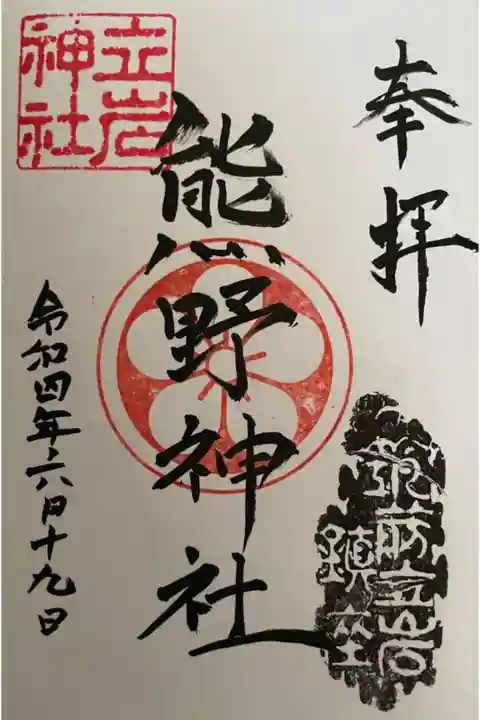 奉拝
立岩
神社
熊野神社
筑前立岩
鎮座
令和四年六月十九日